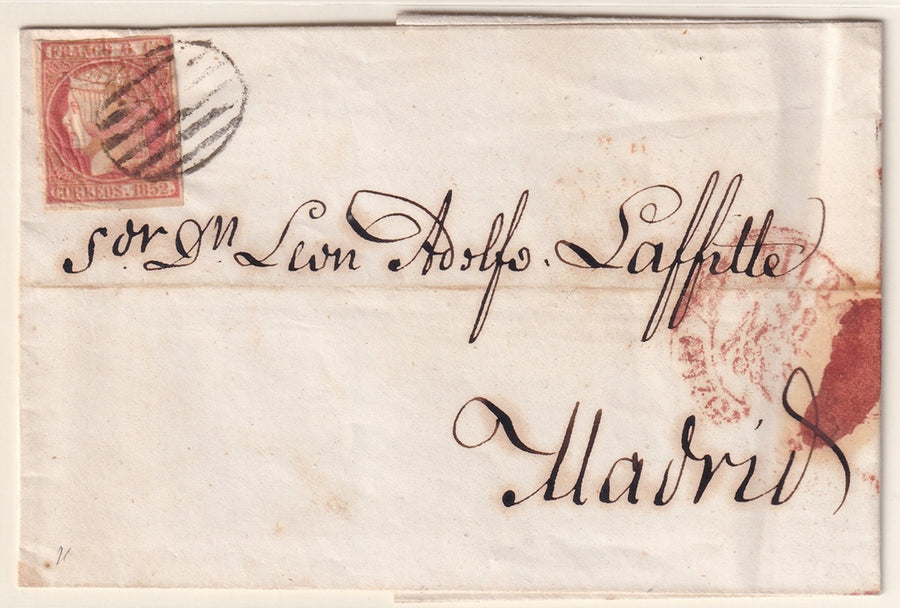 FRANCO 6 Cs
CORREOS. 1852.
Sor. Dn Leon Adolfo. Laffitte
Madrid